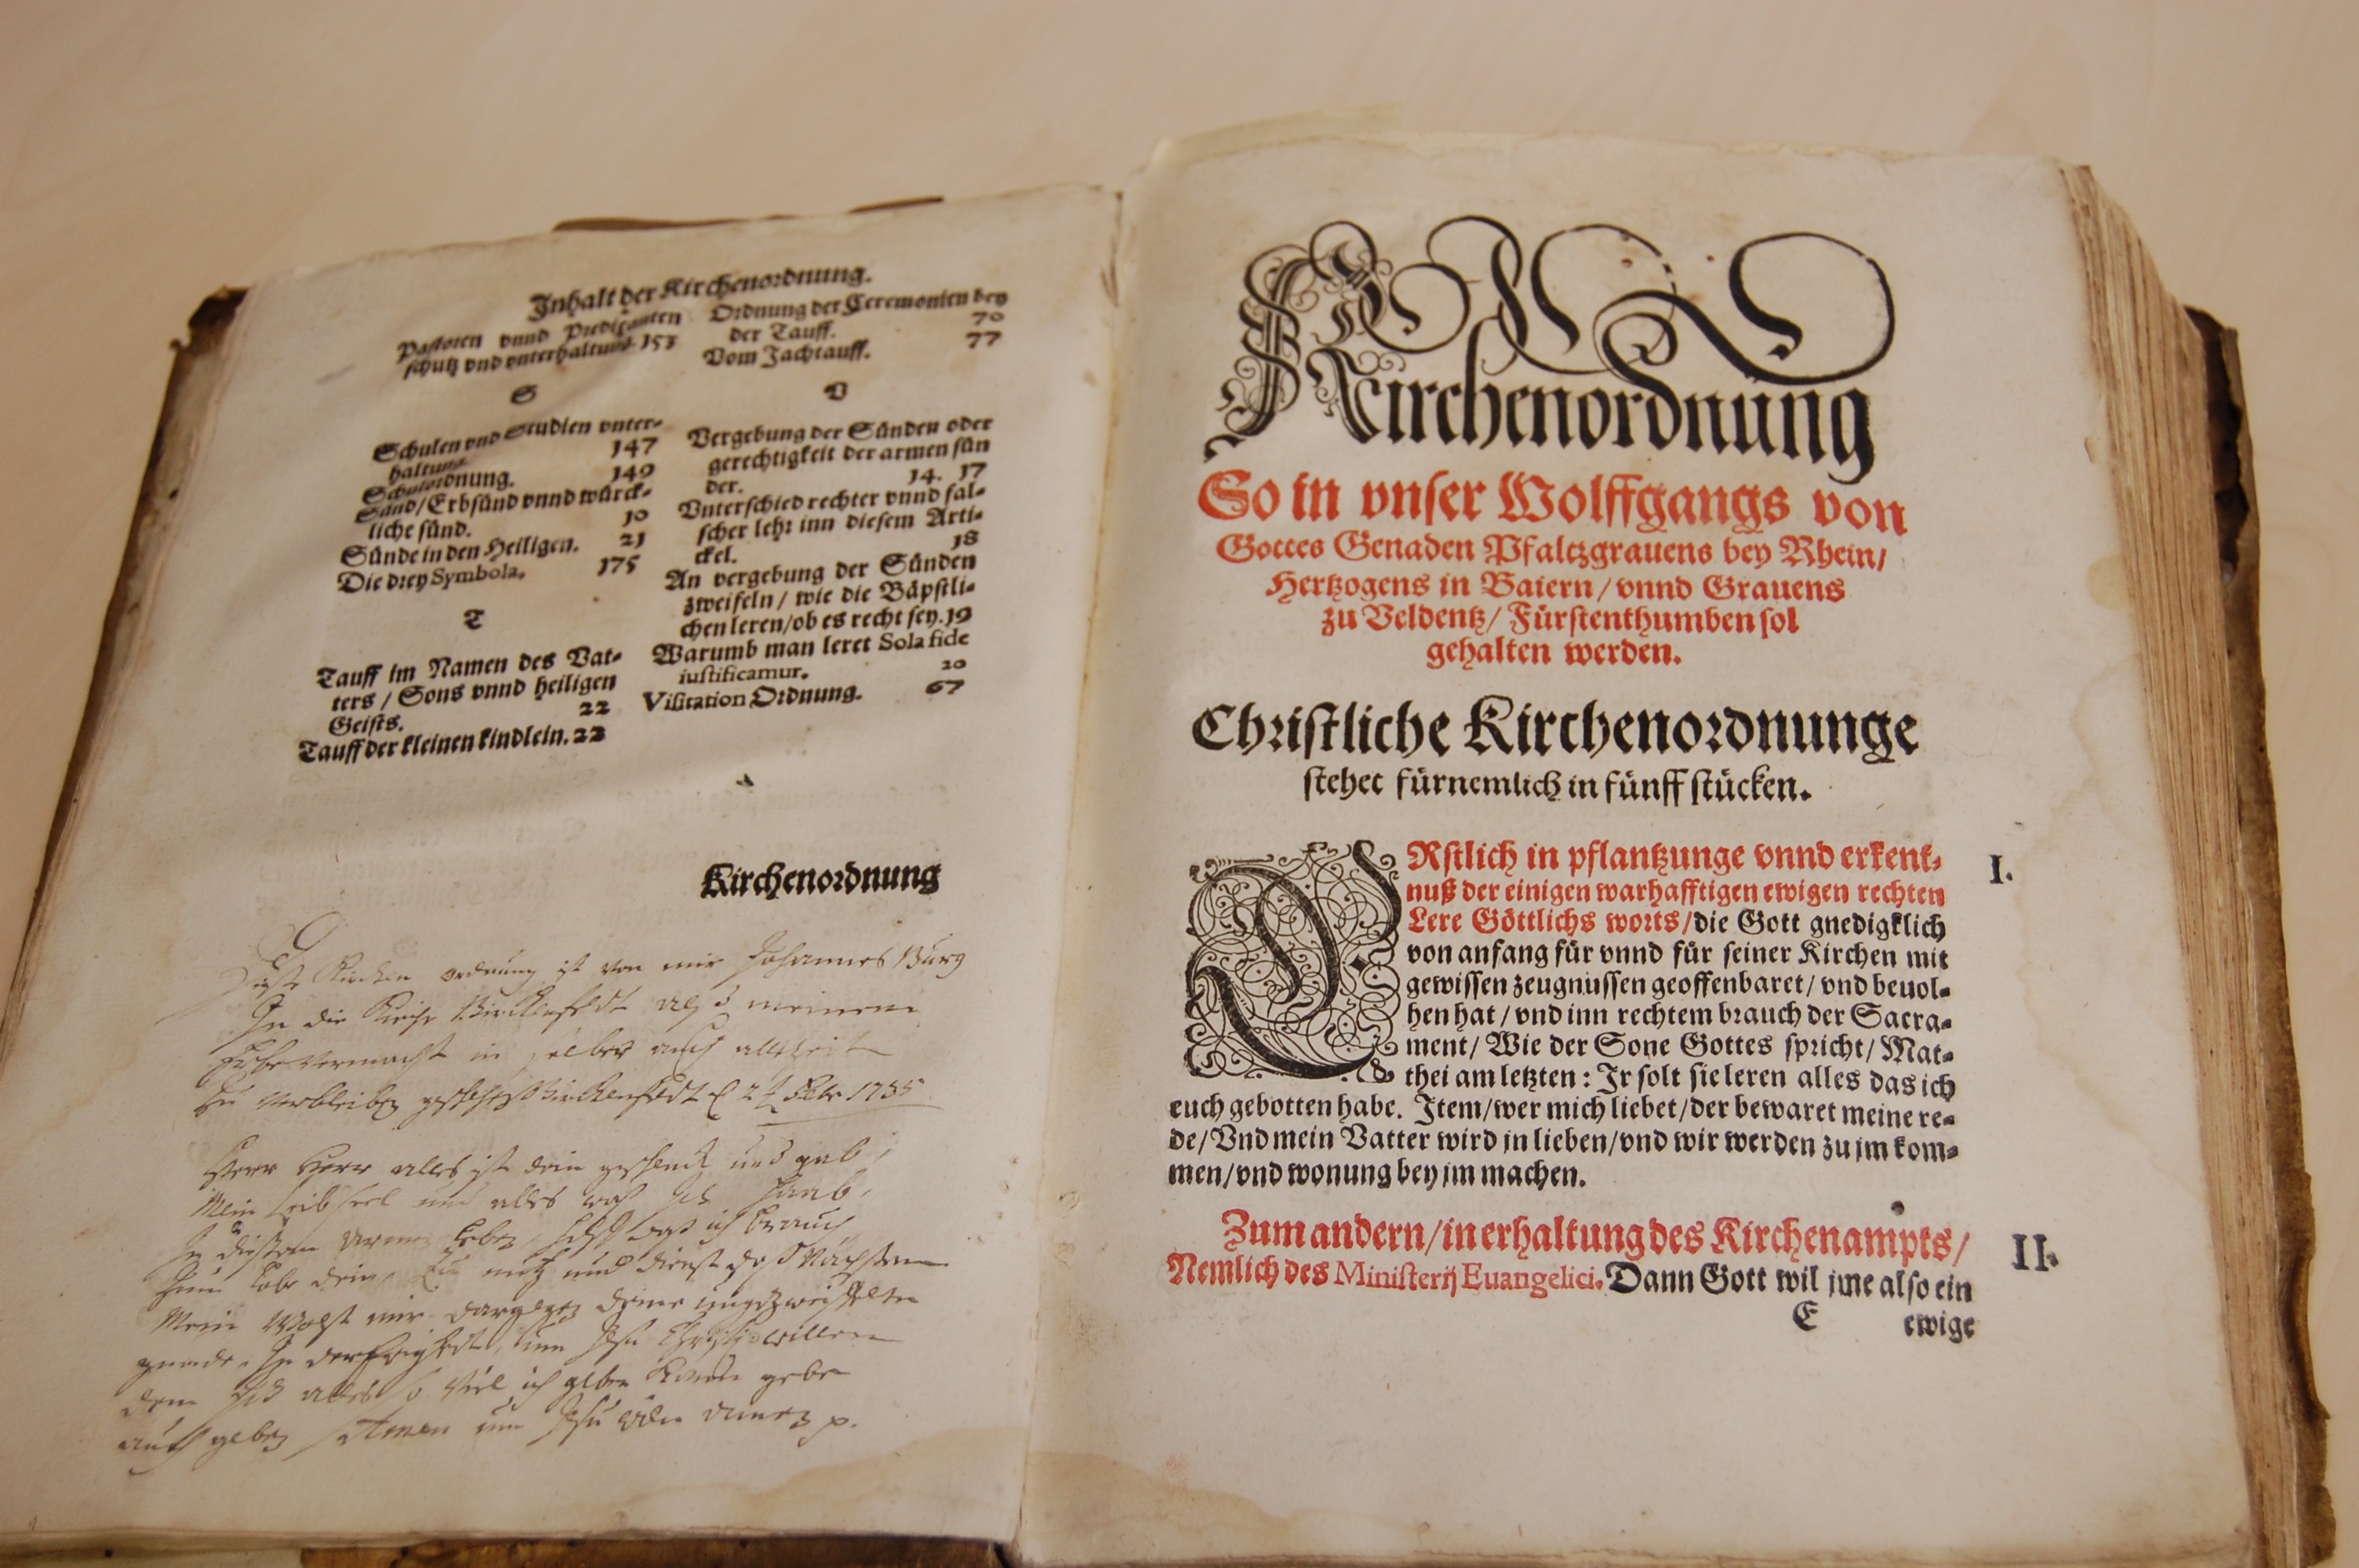 Inhalt der Kirchenordnung.
Pastoren vnnd Predicanten
schutz vnd vnterhaltung. 153
S
Schulen vnd Studien vnter-
haltung. 147
Schulordnung. 149
Sünd/Erbsünd vnnd würck-
liche sünd. 10
Sünde in den Heiligen. 21
Die drey Symbola. 175
T
Tauff im Namen des Vat-
ters / Sons vnnd heiligen
Geists. 22
Tauff der kleinen kindlein. 22
Ordnung der Ceremonien bey
der Tauff. 70
Vom Jachtauff. 77
V
Vergebung der Sünden oder
gerechtigkeit der armen sün
der. 14. 17
Vnterschied rechter vnnd fal-
scher lehr inn diesem Arti-
ckel. 18
An vergebung der Sünden
zweifeln / wie die Bäpstli-
chen leren/ob es recht sey. 19
Warumb man leret Sola fide
iustificamur. 20
Visitation Ordnung. 67
Kirchenordnung
Diese Kirchen ordnung ist von mir Johannes Burg
In die Kirch Birckenfeldt alß meinem
zu verbleiben Birckenfeldt 1735
Herr Herr alles ist dein geschenck und gab,
Mein Leib Seel und alles was ich hab,
In diesem armen Leben
nutz und dienst deß Nächsten
Jesu Christi willen
Amen
Kirchenordnung
So in vnser Wolffgangs von
Gottes Genaden Pfaltzgrauens bey Rhein/
Hertzogens in Baiern / vnnd Grauens
zu Veldentz/ Fürstenthumben sol
gehalten werden.
Christliche Kirchenordnunge
stehet fürnemlich in fünff stücken.
ERstlich in pflantzunge vnnd erkent- I.
nuß der einigen warhafftigen ewigen rechten
Lere Göttlichs worts/die Gott gnedigklich
von anfang für vnnd für seiner Kirchen mit
gewissen zeugnussen geoffenbaret/ vnd beuol-
hen hat / vnd inn rechtem brauch der Sacra-
ment/ Wie der Sone Gottes spricht/ Mat-
thei am letzten: Ir solt sie leren alles das ich
euch gebotten habe. Item/wer mich liebet/der bewaret meine re-
de/Vnd mein Vatter wird jn lieben/vnd wir werden zu jm kom-
men/vnd wonung bey jm machen.
Zum andern/in erhaltung des Kirchenampts/ II.
Nemlich des Ministerij Euangelici. Dann Gott wil jme also ein
E ewige